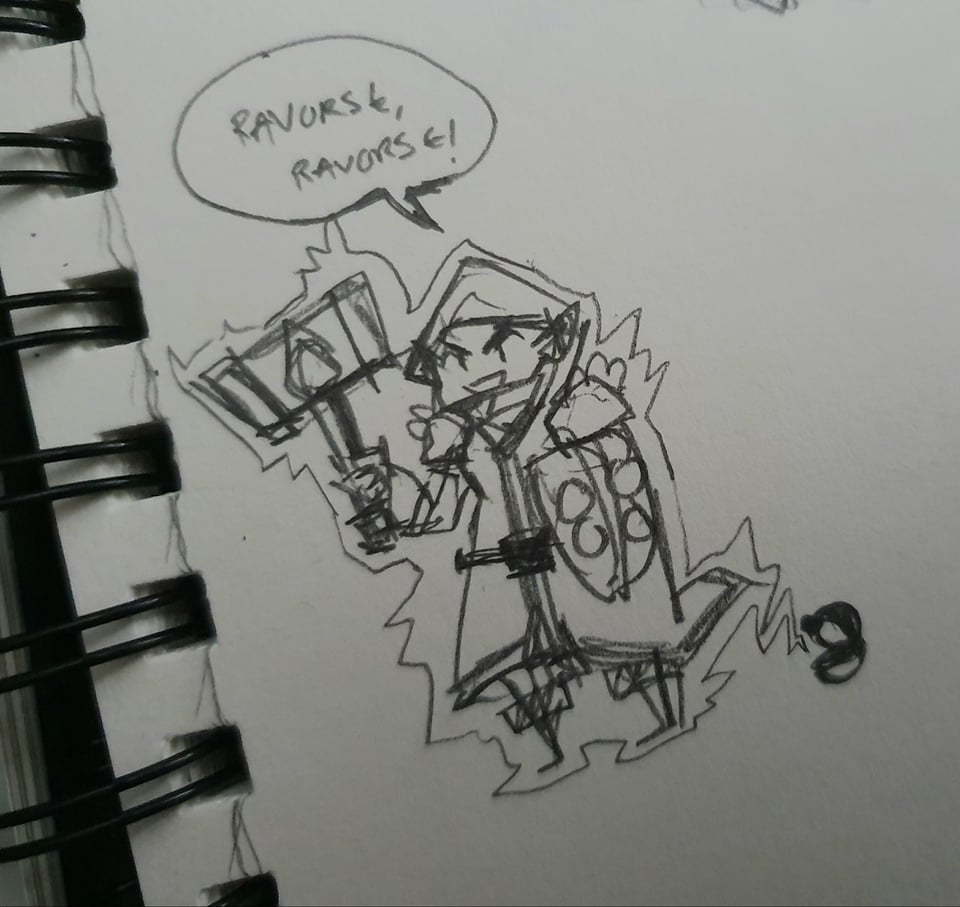 RAVORSE,
RAVORSE!
8